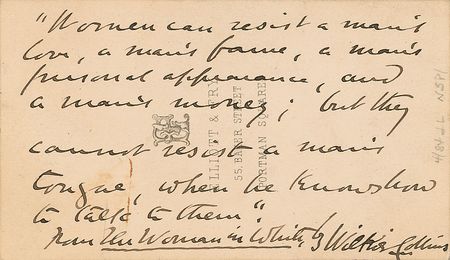 "Women can resist a man's
love, a man's fame, a man's
personal appearance, and
a man's money; but they
cannot resist a man's
tongue, when he knows how
to talk to them."
from The Woman in White, by Wilkie Collins
ELLIOTT & FRY
55, BAKER STREET
PORTMAN SQUARE